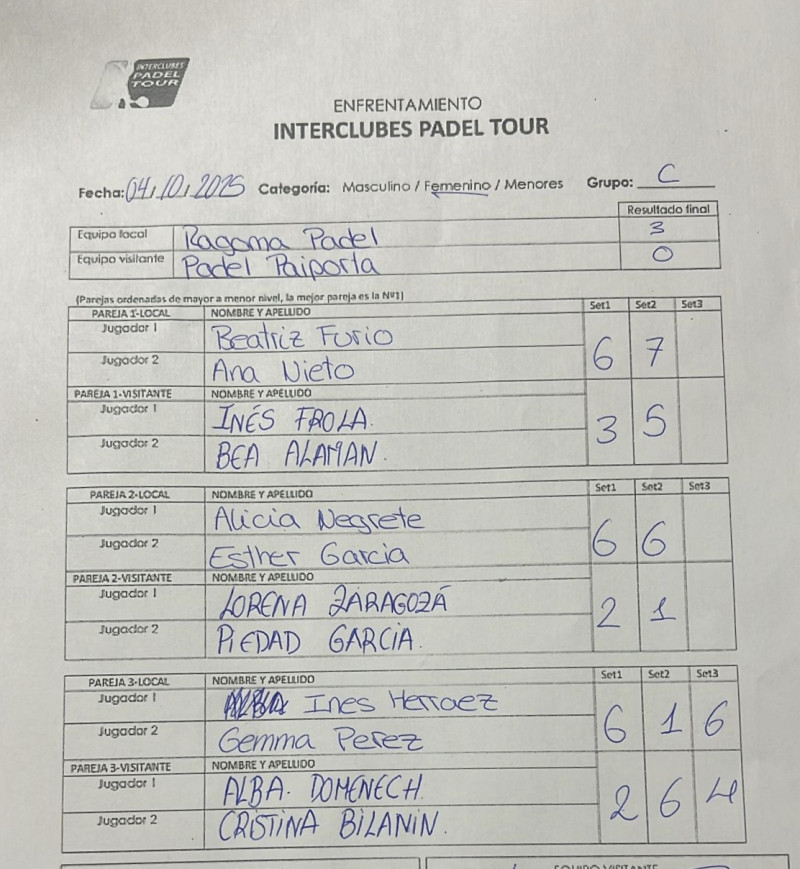 INTERCLUBES
PADEL
TOUR
ENFRENTAMIENTO
INTERCLUBES PADEL TOUR
Fecha: 04/10/2025 Categoría: Masculino / Femenino / Menores Grupo: C
Resultado final
Equipo local Ragama Padel 3
Equipo visitante Padel Paiporta 0
(Parejas ordenadas de mayor a menor nivel, la mejor pareja es la Nº1)
PAREJA 1-LOCAL NOMBRE Y APELLIDO Set1 Set2 Set3
Jugador 1 Beatriz Furio
Jugador 2 Ana Nieto 6 7
PAREJA 1-VISITANTE NOMBRE Y APELLIDO
Jugador 1 INÉS FROLA. 3 5
Jugador 2 BEA ALAMAN.
PAREJA 2-LOCAL NOMBRE Y APELLIDO Set1 Set2 Set3
Jugador 1 Alicia Negrete
Jugador 2 Esther Garcia 6 6
PAREJA 2-VISITANTE NOMBRE Y APELLIDO
Jugador 1 LORENA ZARAGOZÁ 2 1
Jugador 2 PIEDAD GARCIA.
PAREJA 3-LOCAL NOMBRE Y APELLIDO Set1 Set2 Set3
Jugador 1 Ines Herraez
Jugador 2 Gemma Perez 6 1 6
PAREJA 3-VISITANTE NOMBRE Y APELLIDO
Jugador 1 ALBA. DOMENECH. 2 6 4
Jugador 2 CRISTINA BILANIN.
EQUIPO VISITANTE